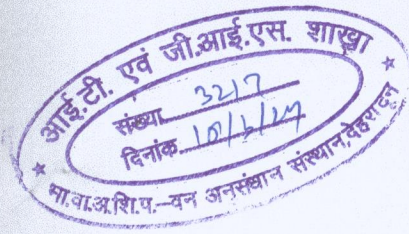 आई.टी. एवं जी.आई.एस. शाखा
संख्या 3217
दिनांक
भा.वा.अ.शि.प.-वन अनुसंधान संस्थान, देहरादून